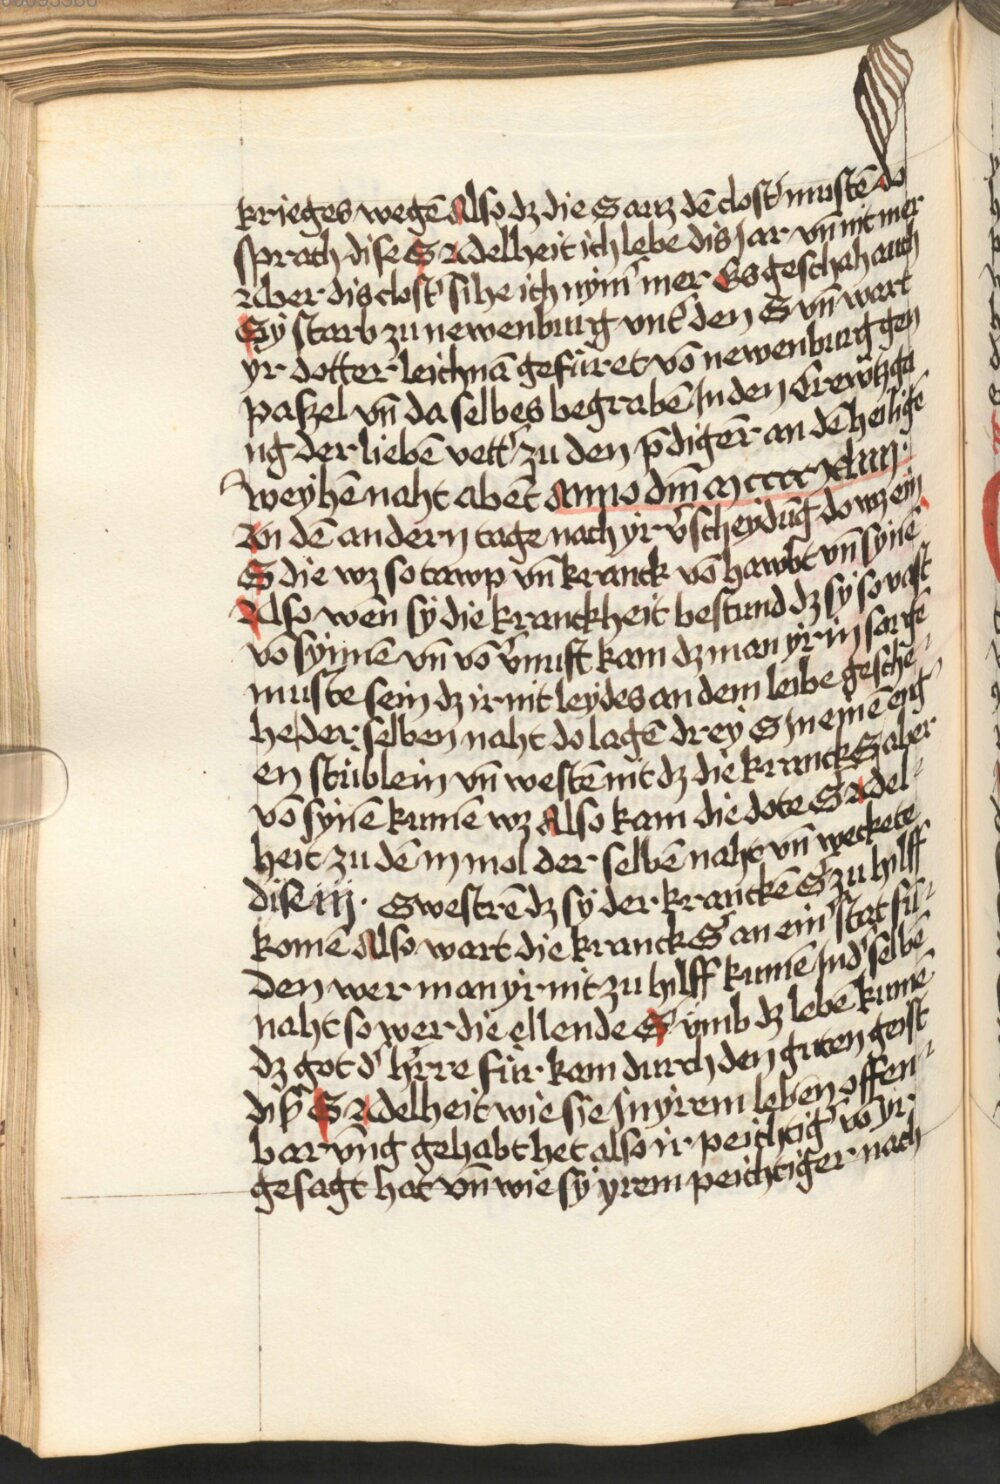 krieges wegē Also dz die S auz dē clost' mustē do
sprach dise S Adelheit ich lebe dis Jar vn̄ nit mer
Aber dis clost' sihe ich nym̄' mer Es geschah auch
Sy starb zu newenburg vnt' den S vn̄ wart
yr dotter leichnā gefüret vō newenburg gen
paszel vn̄ da selbes begrabē Jn den Crewtzga
ng der liebē vett' zu den p̄diger̄ an dē heiligē
weyhē naht abēt Anno dm̄ m cccc xliiii.
An dē andern tage nach yr v'scheydūg do wz ein
S die wz so tawp vn̄ kranck vō hawbt vn̄ synē
Also wen sy die kranckheit bestund dz sy so vast
vō synnē vn̄ vō v'nuft kam dz man yr in sorgē
muste sein dz ir nit leydes an dem leibe gesche
he der selben naht do lagē drey S Jn einē eng
en stüblein vn̄ westē nit dz die kranck S aber
vō synē kumē wz Also kam die dote S Adel
heit zu dē iij mol der selbē naht vn̄ weckete
dise iij. Swestrē dz sy der kranckē S zu hilff
komē Also wart die kranck S an ein' stat fu
den wer man yr nit zu hilff kumē Jn d' selbē
naht so wer die ellende S vmb dz lebē kumē
dz got d' h'rre für kam durch den guten geist
dis' S Adelheit wie sie Jn yrem leben offen
barūng gehabt het also ir peichtig' vō yr
gesagt hat vn̄ wie sy yrem peichtiger nach